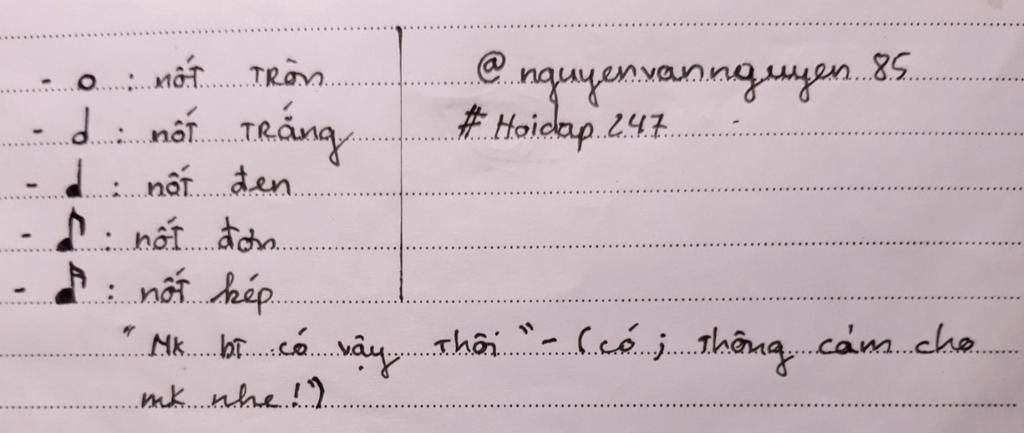 - o : nốt TRÒN
- 𝅗𝅥 : nốt TRẮNG
- ♩ : nốt đen
- ♪ : nốt đơn
- 𝅘𝅥𝅯 : nốt kép
@ nguyenvannguyen 85
# Hoidap 247
" Mk bt có vậy thôi " - ( có ; thông cảm cho
mk nhe ! )